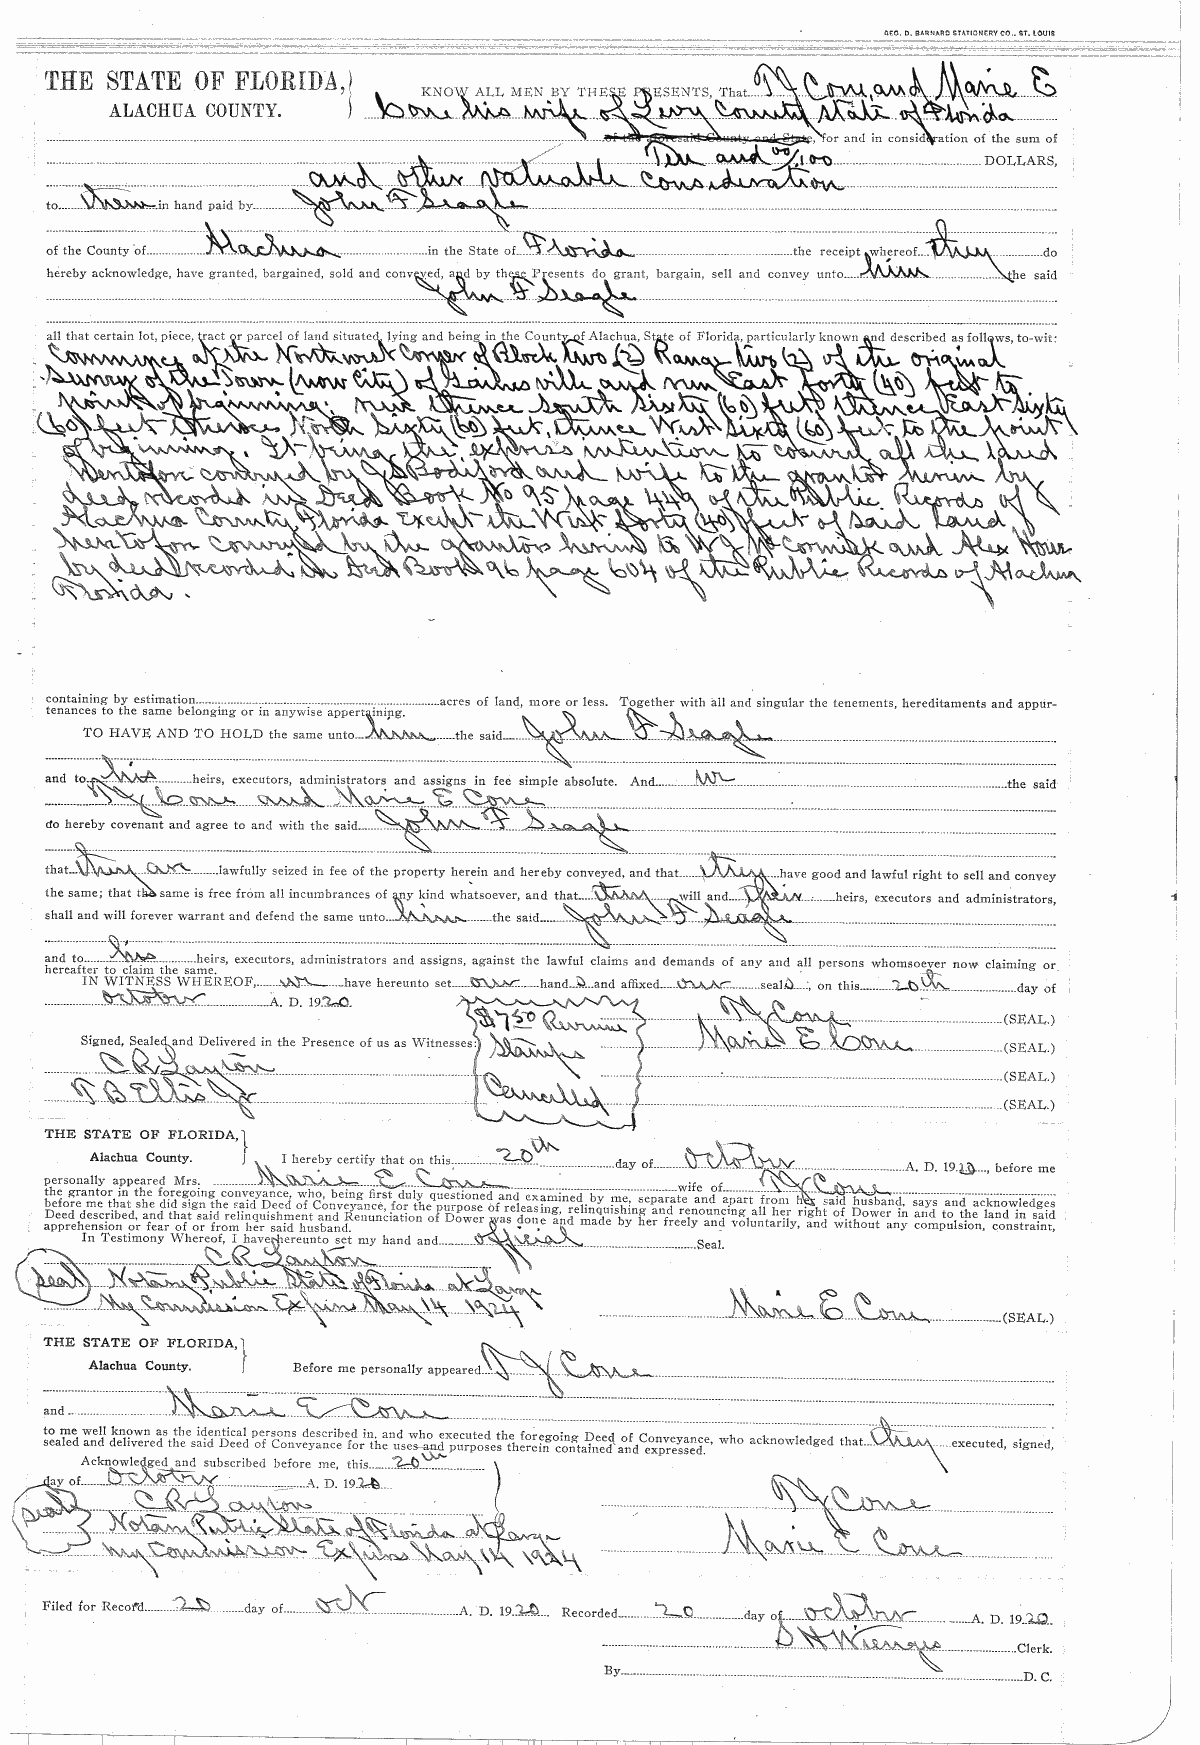 GEO. D. BARNARD STATIONERY CO., ST. LOUIS
THE STATE OF FLORIDA,
ALACHUA COUNTY.
KNOW ALL MEN BY THESE PRESENTS, That T J Cone and Marie E
Cone his wife of Levy County State of Florida
of the aforesaid County and State, for and in consideration of the sum of
Ten and 00/100 DOLLARS,
and other valuable consideration
to them in hand paid by John F Seagle
of the County of Alachua in the State of Florida the receipt whereof they do
hereby acknowledge, have granted, bargained, sold and conveyed, and by these Presents do grant, bargain, sell and convey unto him the said
John F Seagle
all that certain lot, piece, tract or parcel of land situated, lying and being in the County of Alachua, State of Florida, particularly known and described as follows, to-wit:
Commence at the Northwest Corner of Block two (2) Range two (2) of the original
Survey of the Town (now City) of Gainesville and run East forty (40) feet to
point of beginning; run thence South Sixty (60) feet, thence East Sixty
(60) feet thence North Sixty (60) feet, thence West Sixty (60) feet to the point
of beginning. It being the express intention to convey all the land
heretofore conveyed by J S Bodiford and wife to the grantor herein by
deed recorded in Deed Book No 95 page 449 of the Public Records of
Alachua County, Florida Except the West forty (40) feet of said land,
heretofore conveyed by the grantors herein to W J McCormick and Alex
by deed recorded in Deed Book 96 page 604 of the Public Records of Alachua
Florida.
containing by estimation acres of land, more or less. Together with all and singular the tenements, hereditaments and appur-
tenances to the same belonging or in anywise appertaining.
TO HAVE AND TO HOLD the same unto him the said John F Seagle
and to his heirs, executors, administrators and assigns in fee simple absolute. And we the said
T J Cone and Marie E Cone
do hereby covenant and agree to and with the said John F Seagle
that they are lawfully seized in fee of the property herein and hereby conveyed, and that they have good and lawful right to sell and convey
the same; that the same is free from all incumbrances of any kind whatsoever, and that they will and their heirs, executors and administrators,
shall and will forever warrant and defend the same unto him the said John F Seagle
and to his heirs, executors, administrators and assigns, against the lawful claims and demands of any and all persons whomsoever now claiming or
hereafter to claim the same.
IN WITNESS WHEREOF, we have hereunto set our hand s and affixed our seal s, on this 20th day of
October A. D. 1920.
T J Cone (SEAL.)
$7.50 Revenue
Signed, Sealed and Delivered in the Presence of us as Witnesses: Stamps Marie E Cone (SEAL.)
C R Layton (SEAL.)
T B Ellis Jr Cancelled (SEAL.)
THE STATE OF FLORIDA,
Alachua County. I hereby certify that on this 20th day of October A. D. 1920, before me
personally appeared Mrs. Marie E Cone wife of T J Cone
the grantor in the foregoing conveyance, who, being first duly questioned and examined by me, separate and apart from her said husband, says and acknowledges
before me that she did sign the said Deed of Conveyance, for the purpose of releasing, relinquishing and renouncing all her right of Dower in and to the land in said
Deed described, and that said relinquishment and Renunciation of Dower was done and made by her freely and voluntarily, and without any compulsion, constraint,
apprehension or fear of or from her said husband.
In Testimony Whereof, I have hereunto set my hand and official Seal.
C R Layton
Seal Notary Public State of Florida at Large
My Commission Expires May 14 1924 Marie E Cone (SEAL.)
THE STATE OF FLORIDA,
Alachua County. Before me personally appeared T J Cone
and Marie E Cone
to me well known as the identical persons described in, and who executed the foregoing Deed of Conveyance, who acknowledged that they executed, signed,
sealed and delivered the said Deed of Conveyance for the uses and purposes therein contained and expressed.
Acknowledged and subscribed before me, this 20th
day of October A. D. 1920
C R Layton T J Cone
Seal Notary Public State of Florida at Large
My Commission Expires May 14 1924 Marie E Cone
Filed for Record 20 day of Oct A. D. 1920 Recorded 20 day of October A. D. 1920
S H Wienges Clerk.
By D. C.